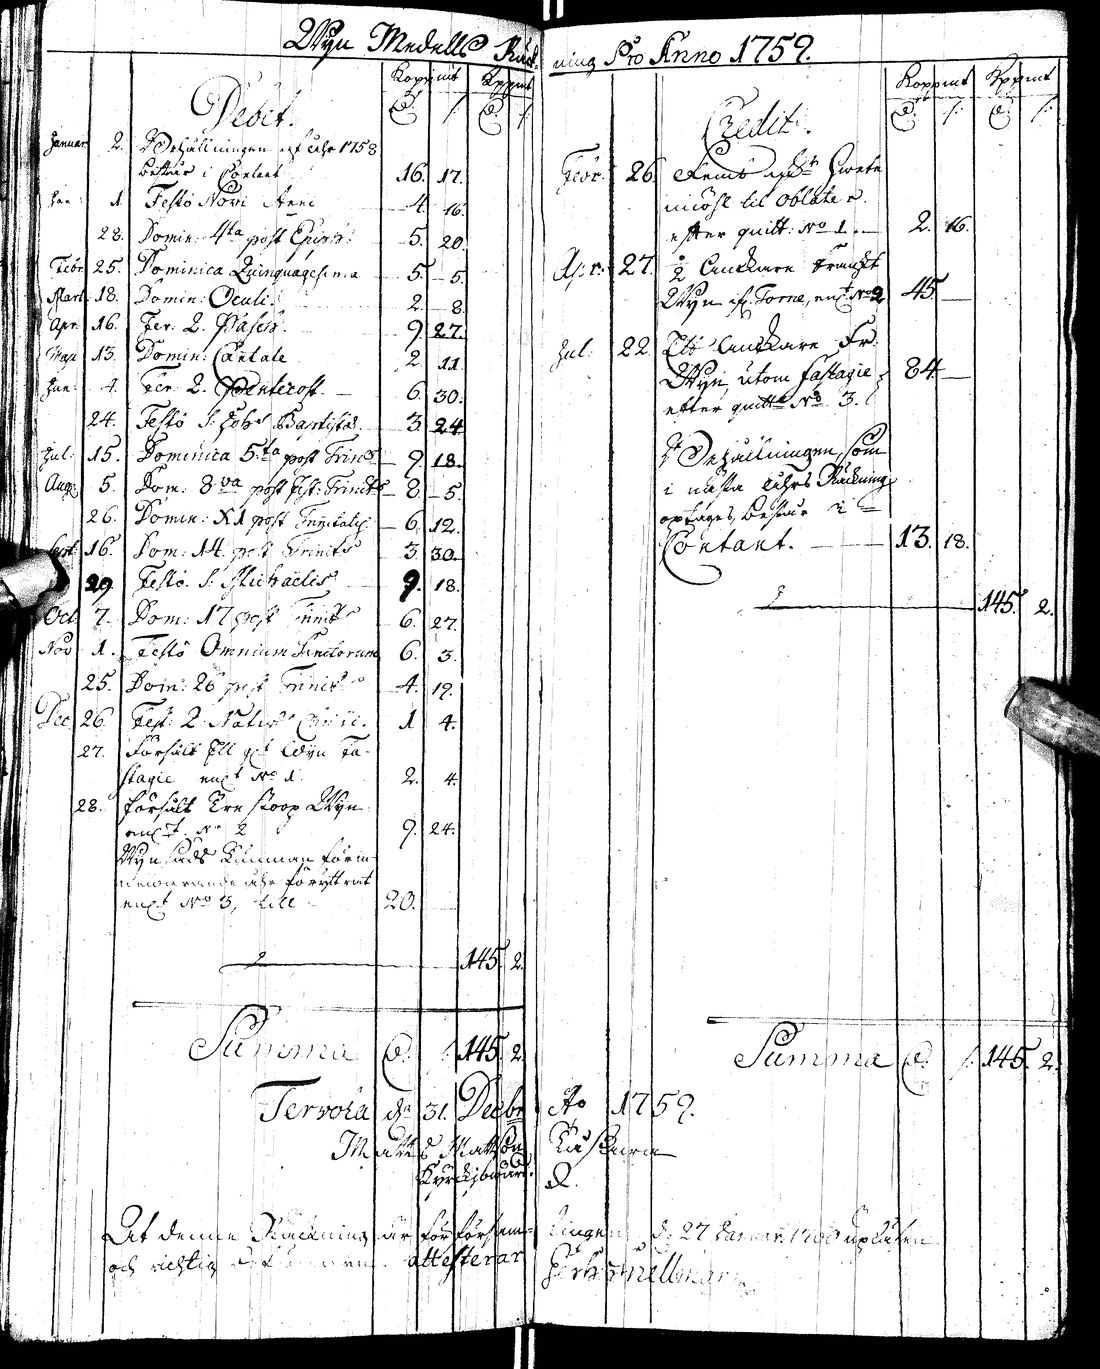 Wyn Medells Räk-
ning Pro Anno 1759.
Debet.
Koppmt Koppmt
Januar 2. Behållningen af åhr 1758
består i Contant 16. 17.
Jan: 1. Festo Novi Anni 4. 16.
28. Domin: 4ta post Epiph: 5. 20.
Febr. 25. Dominica Quinquagesima 5. 5.
Mart. 18. Domin: Oculi. 2. 8.
Apr. 16. Fer: 2. Pasch. 9. 27.
Maji 13. Domin: Cantate 2. 11.
Jun: 4. Fer: 2. Pentecost. 6. 30.
24. Festo S: Joh: Baptistæ 3. 24.
Jul: 15. Dominica 5.ta post Trinit: 9. 18.
Aug: 5. Dom: 8.va post Fest: Trinit: 8. 5.
26. Domin: XI post Trinitatis 6. 12.
Sept: 16. Dom: 14. post Trinit: 3. 30.
29. Festo S: Michaelis 9. 18.
Oct. 7. Dom: 17 post Trinit: 6. 27.
Nov. 1. Festo Omnium Sanctorum 6. 3.
25. Dom: 26 post Trinit: 4. 19.
Dec. 26. Fest: 2. Nativ: Christi. 1 4.
27. Försält Wyn Fa-
stagie No 1. 2. 4.
28. försålt Tre stoop Wyn
No 2 9. 24.
Wyn för in-
åhr
No 3, till 20.
145. 2.
Summa 145. 2.
Credit.
Koppmt Koppmt
Febr. 26.
miöhl til Oblater.
efter quitt: No 1. 2. 16.
Apr: 27. 1/2 Anckare Franskt
Wyn if. Torne, No 2 45.
Jul: 22. Ett Anckare Fr:
Wyn, utom fastagie
efter quitto No 3. 84
Behållningen, som
i nästa åhrs Räkning
optages, består i
Contant. 13. 18.
145. 2.
Summa 145. 2.
Tervola d. 31. Decbr Ao 1759.
Matts Mattson
Kyrckjowärd.
At denne Räkning är för församlingen d. 27 Januar 1760 upläsen
och richtig attesterar